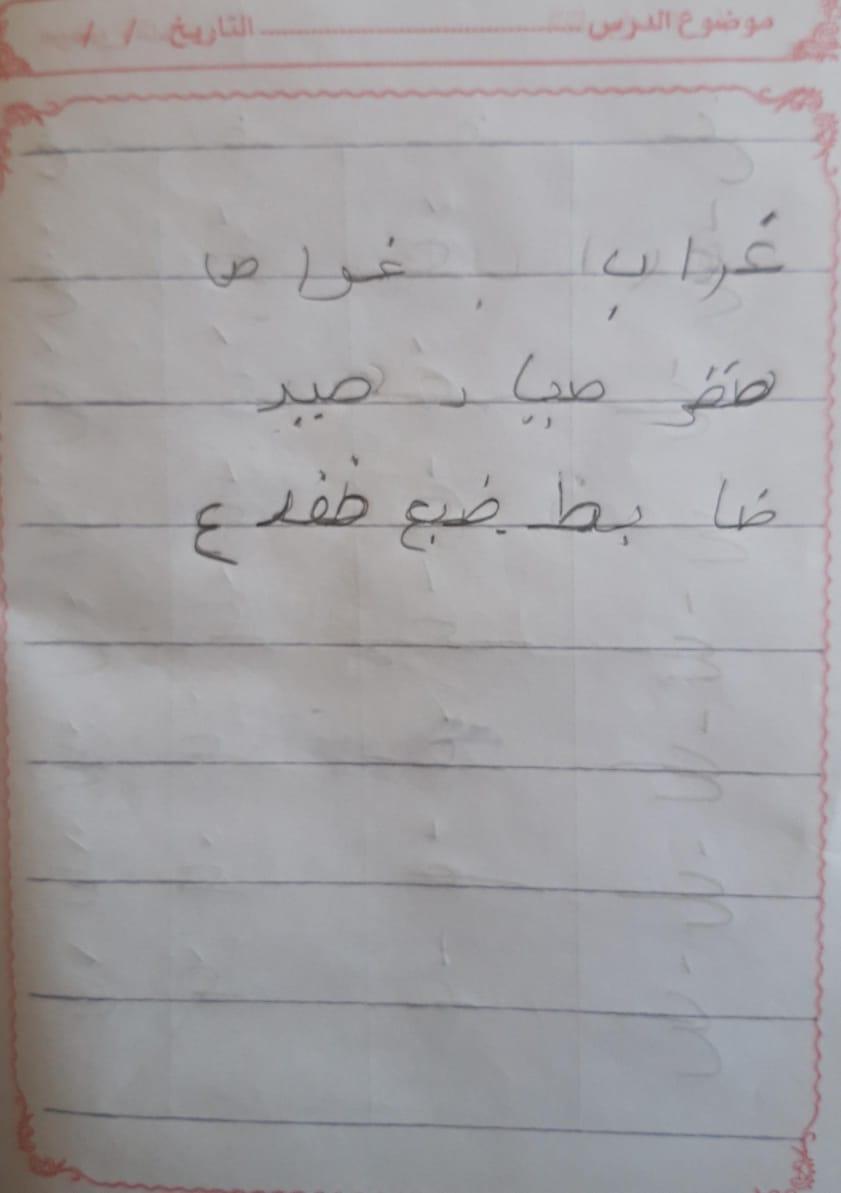 موضوع الدرس ........................ التاريخ / /
غراب غواص
صقر صياد صيد
ضا بط ضبع ضفدع